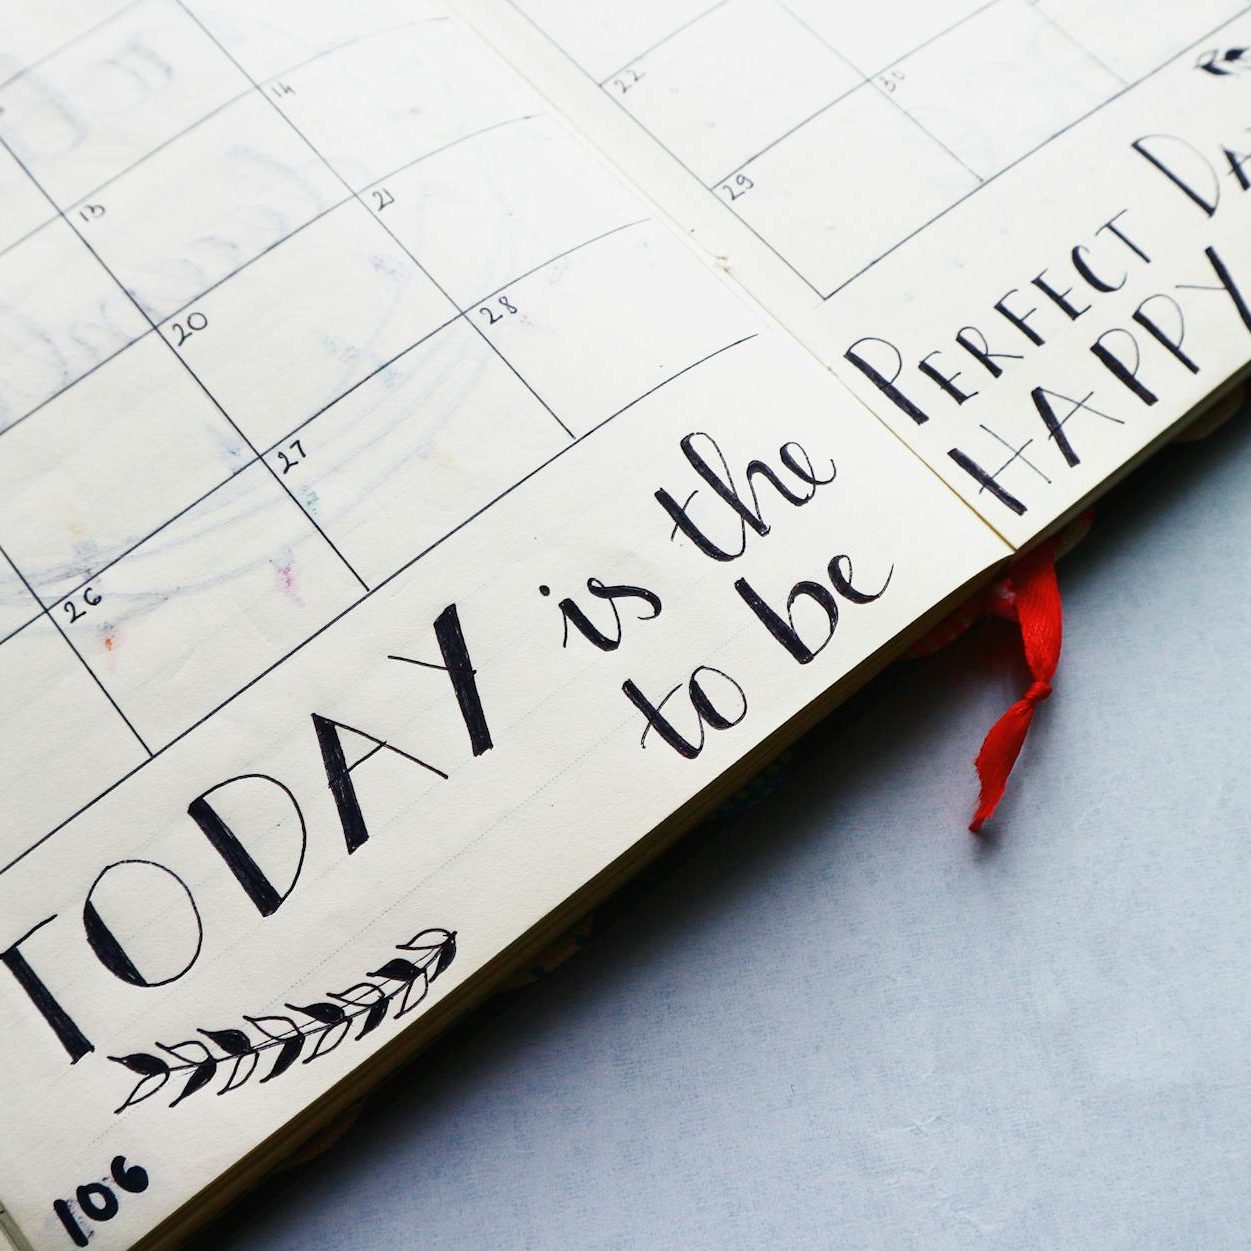 14
13
21
20
28
27
26
22
30
29
TODAY is the
to be
106
PERFECT
HAPPY